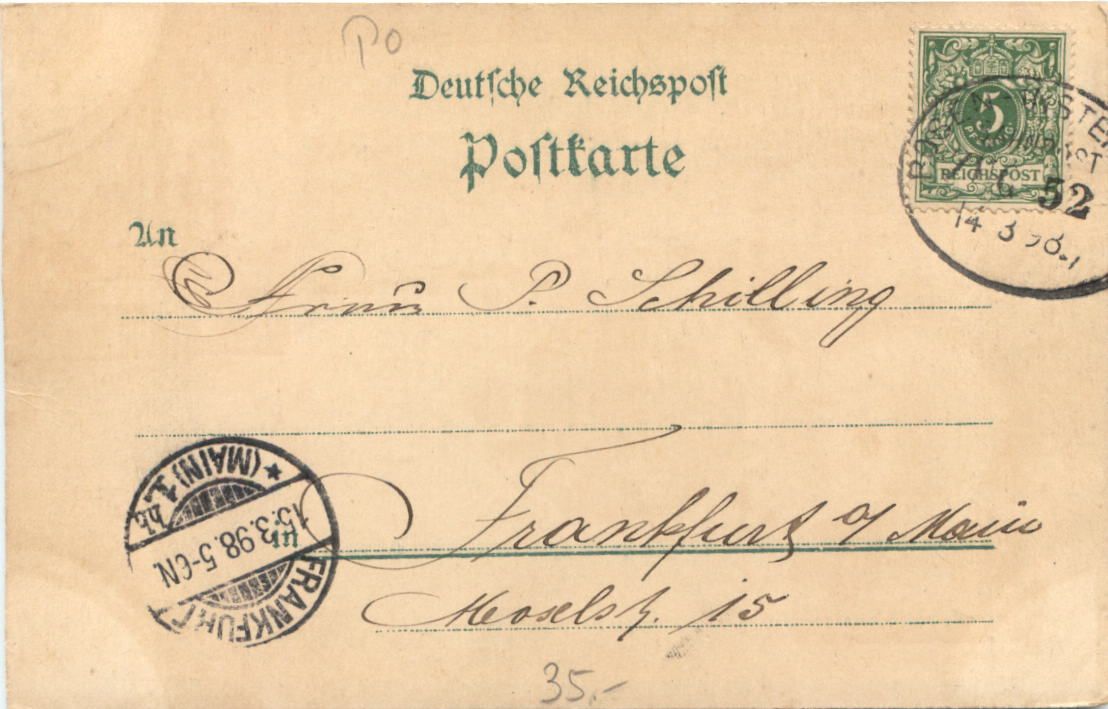 Po
Deutsche Reichspost
Postkarte
5
PFENNIG
REICHSPOST
52
14 3 98
An
Frau P. Schilling
* (MAIN) 1.
15.3.98.5-6N.
FRANKFURT
in
Frankfurt a/ Main
Moselstr. 15
35,-